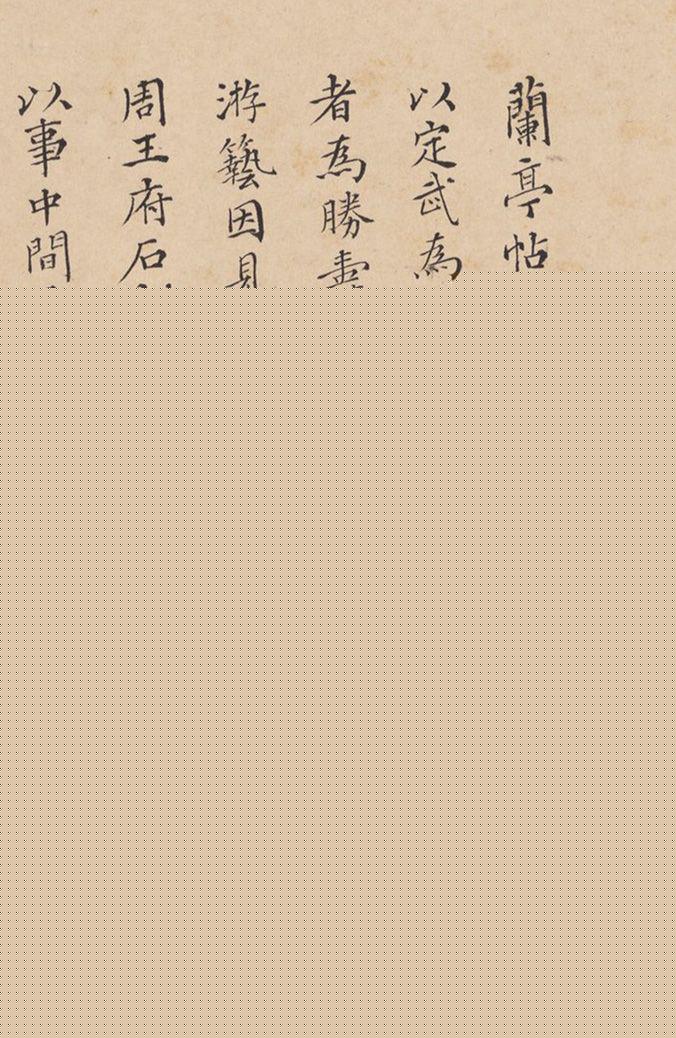 蘭亭帖
以定武為
者為勝
游藝因見
周王府石
以事中間